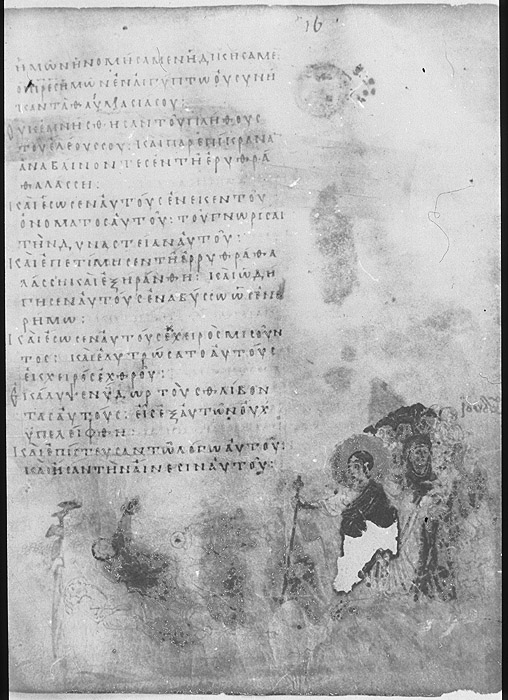 ΗΜΩΝΗΝΟΜΗCΑΜΕΝΗΔΙΚΗCΑΜΕ
ΟΙΠΡΕCΗΜΩΝΕΝΑΙΓΥΠΤΩΟΥCΥΝΗ
ΚΑΝΤΑΘΑΥΜΑCΙΑCΟΥ:
ΟΥΚΕΜΝΗCΘΗCΑΝΤΟΥΠΛΗΘΟΥC
ΤΟΥΕΛΕΟΥCCΟΥ: ΚΑΙΠΑΡΕΠΙΚΡΑΝΑ
ΑΝΑΒΑΙΝΟΝΤΕCΕΝΤΗΕΡΥΘΡΑ
ΘΑΛΑCCΗ:
ΚΑΙΕCΩCΕΝΑΥΤΟΥCΕΝΕΚΕΝΤΟΥ
ΟΝΟΜΑΤΟCΑΥΤΟΥ: ΤΟΥΓΝΩΡΙCΑΙ
ΤΗΝΔΥΝΑCΤΕΙΑΝΑΥΤΟΥ:
ΚΑΙΕΠΕΤΙΜΗCΕΝΤΗΕΡΥΘΡΑΘΑ
ΛΑCCΗΚΑΙΕΞΗΡΑΝΘΗ: ΚΑΙΩΔΗ
ΓΗCΕΝΑΥΤΟΥCΕΝΑΒΥCCΩΩCΕΝΕ
ΡΗΜΩ:
ΚΑΙΕCΩCΕΝΑΥΤΟΥCΕΚΧΕΙΡΟCΜΙCΟΥΝ
ΤΟC: ΚΑΙΕΛΥΤΡΩCΑΤΟΑΥΤΟΥC
ΕΚΧΕΙΡΟCΕΧΘΡΟΥ:
ΕΚΑΛΥΨΕΝΥΔΩΡΤΟΥCΘΛΙΒΟΝ
ΤΑCΑΥΤΟΥC: ΕΙCΕΞΑΥΤΩΝΟΥΧ
ΥΠΕΛΕΙΦΘΗ:
ΚΑΙΕΠΙCΤΕΥCΑΝΤΩΛΟΓΩΑΥΤΟΥ:
ΚΑΙΗCΑΝΤΗΝΑΙΝΕCΙΝΑΥΤΟΥ: